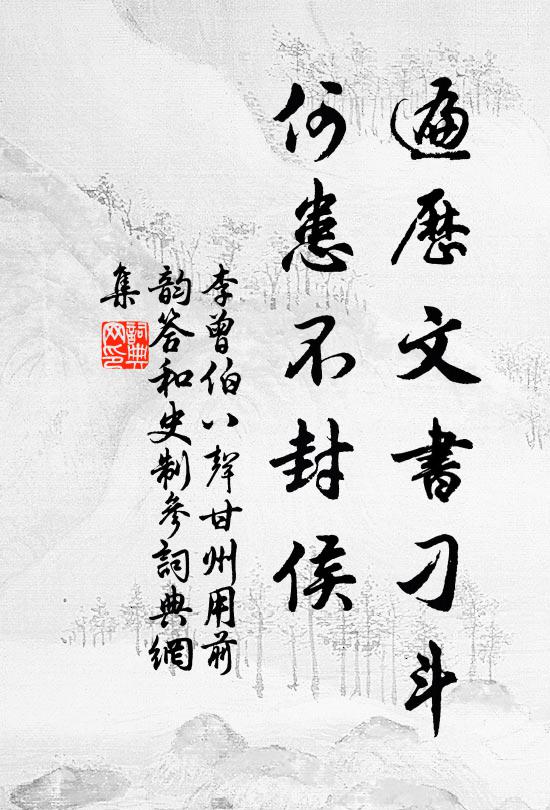 遍歷文書刁斗
何患不封侯
李曾伯八聲甘州用前
韵答和史制參詞典網
集
詞典
网印